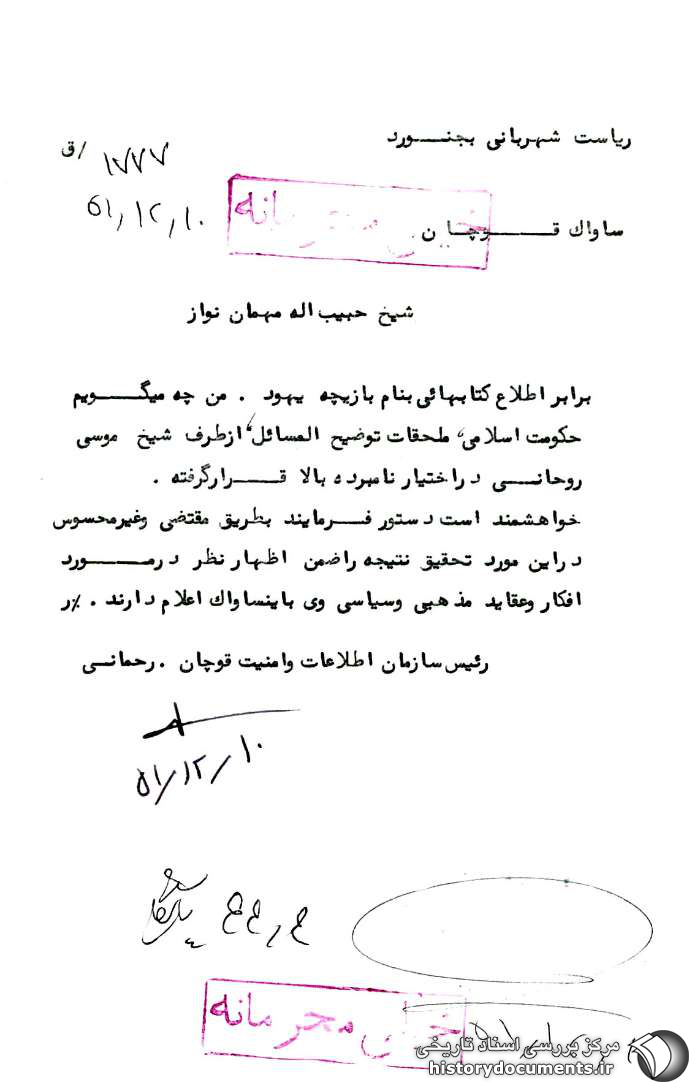 ریاست شهربانی بجنـــورد
۱۷۷۷ /ق
۵۱/۱۲/۱۰
خیلی محرمانه
ساواك قـــــوچـا ن
شیخ حبیب اله مهمان نواز
برابر اطلاع کتابهائی بنام بازیچه یهود . من چه میگـــویم
حکومت اسلامی، ملحقات توضیح المسائل، ازطرف شیخ موسی
روحانــی دراختیار نامبرده بالا قـــرارگرفته .
خواهشمند است دستور فــرمایند بطریق مقتضی وغیرمحسوس
دراین مورد تحقیق نتیجه راضمن اظهار نظر درمـــورد
افکار وعقاید مذهبی وسیاسی وی باینساواك اعلام دارند . ٪ر
رئیس سازمان اطلاعات وامنیت قوچان . رحمانی
۵۱/۱۲/۱۰
خیلی محرمانه
مرکز بررسی اسناد تاریخی
historydocuments.ir